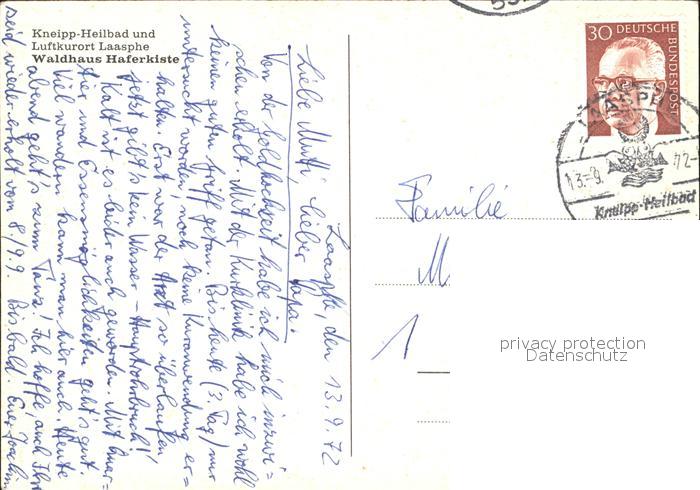 Kneipp-Heilbad und
Luftkurort Laasphe
Waldhaus Haferkiste
Laasphe, den 13.9.72
Liebe Mutti, lieber Papa!
Von der Goldhochzeit habe ich mich inzwi=
schen erholt. Mit der Kurklinik habe ich wohl
keinen guten Griff getan. Bis heute (3. Tag) nur
untersucht worden, noch keine Kuranwendung er=
halten. Erst war der Arzt so überlaufen,
jetzt gibt's kein Wasser - Hauptrohrbruch!
Kalt ist es leider auch geworden. Mit
tier und Essensmöglichkeiten geht's gut.
Viel wandern kann man hier auch. Heute
abend geht's zum Tanz! Ich hoffe, auch Ihr
seid wieder erholt vom 8./9.9. Bis bald. Euer Joachim
30 DEUTSCHE
BUNDESPOST
LAASPHE
13.-9. 72-
Kneipp-Heilbad
Familie
M
1
privacy protection
Datenschutz